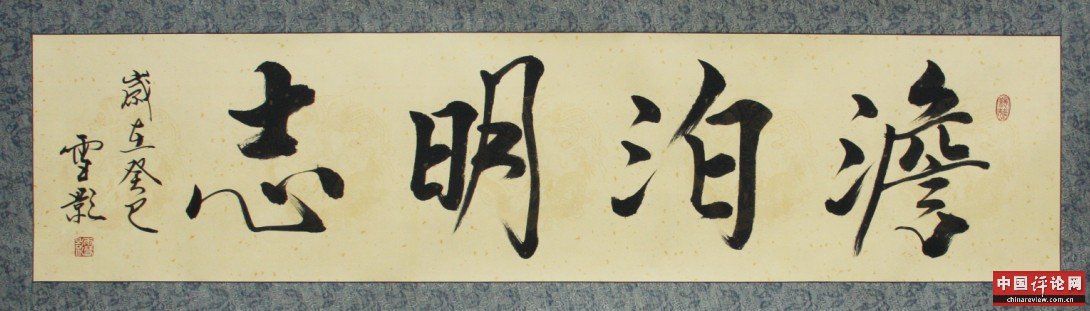 澹泊明志
歲在癸巳
雪影
中国评论网
www.chinareview.com.cn